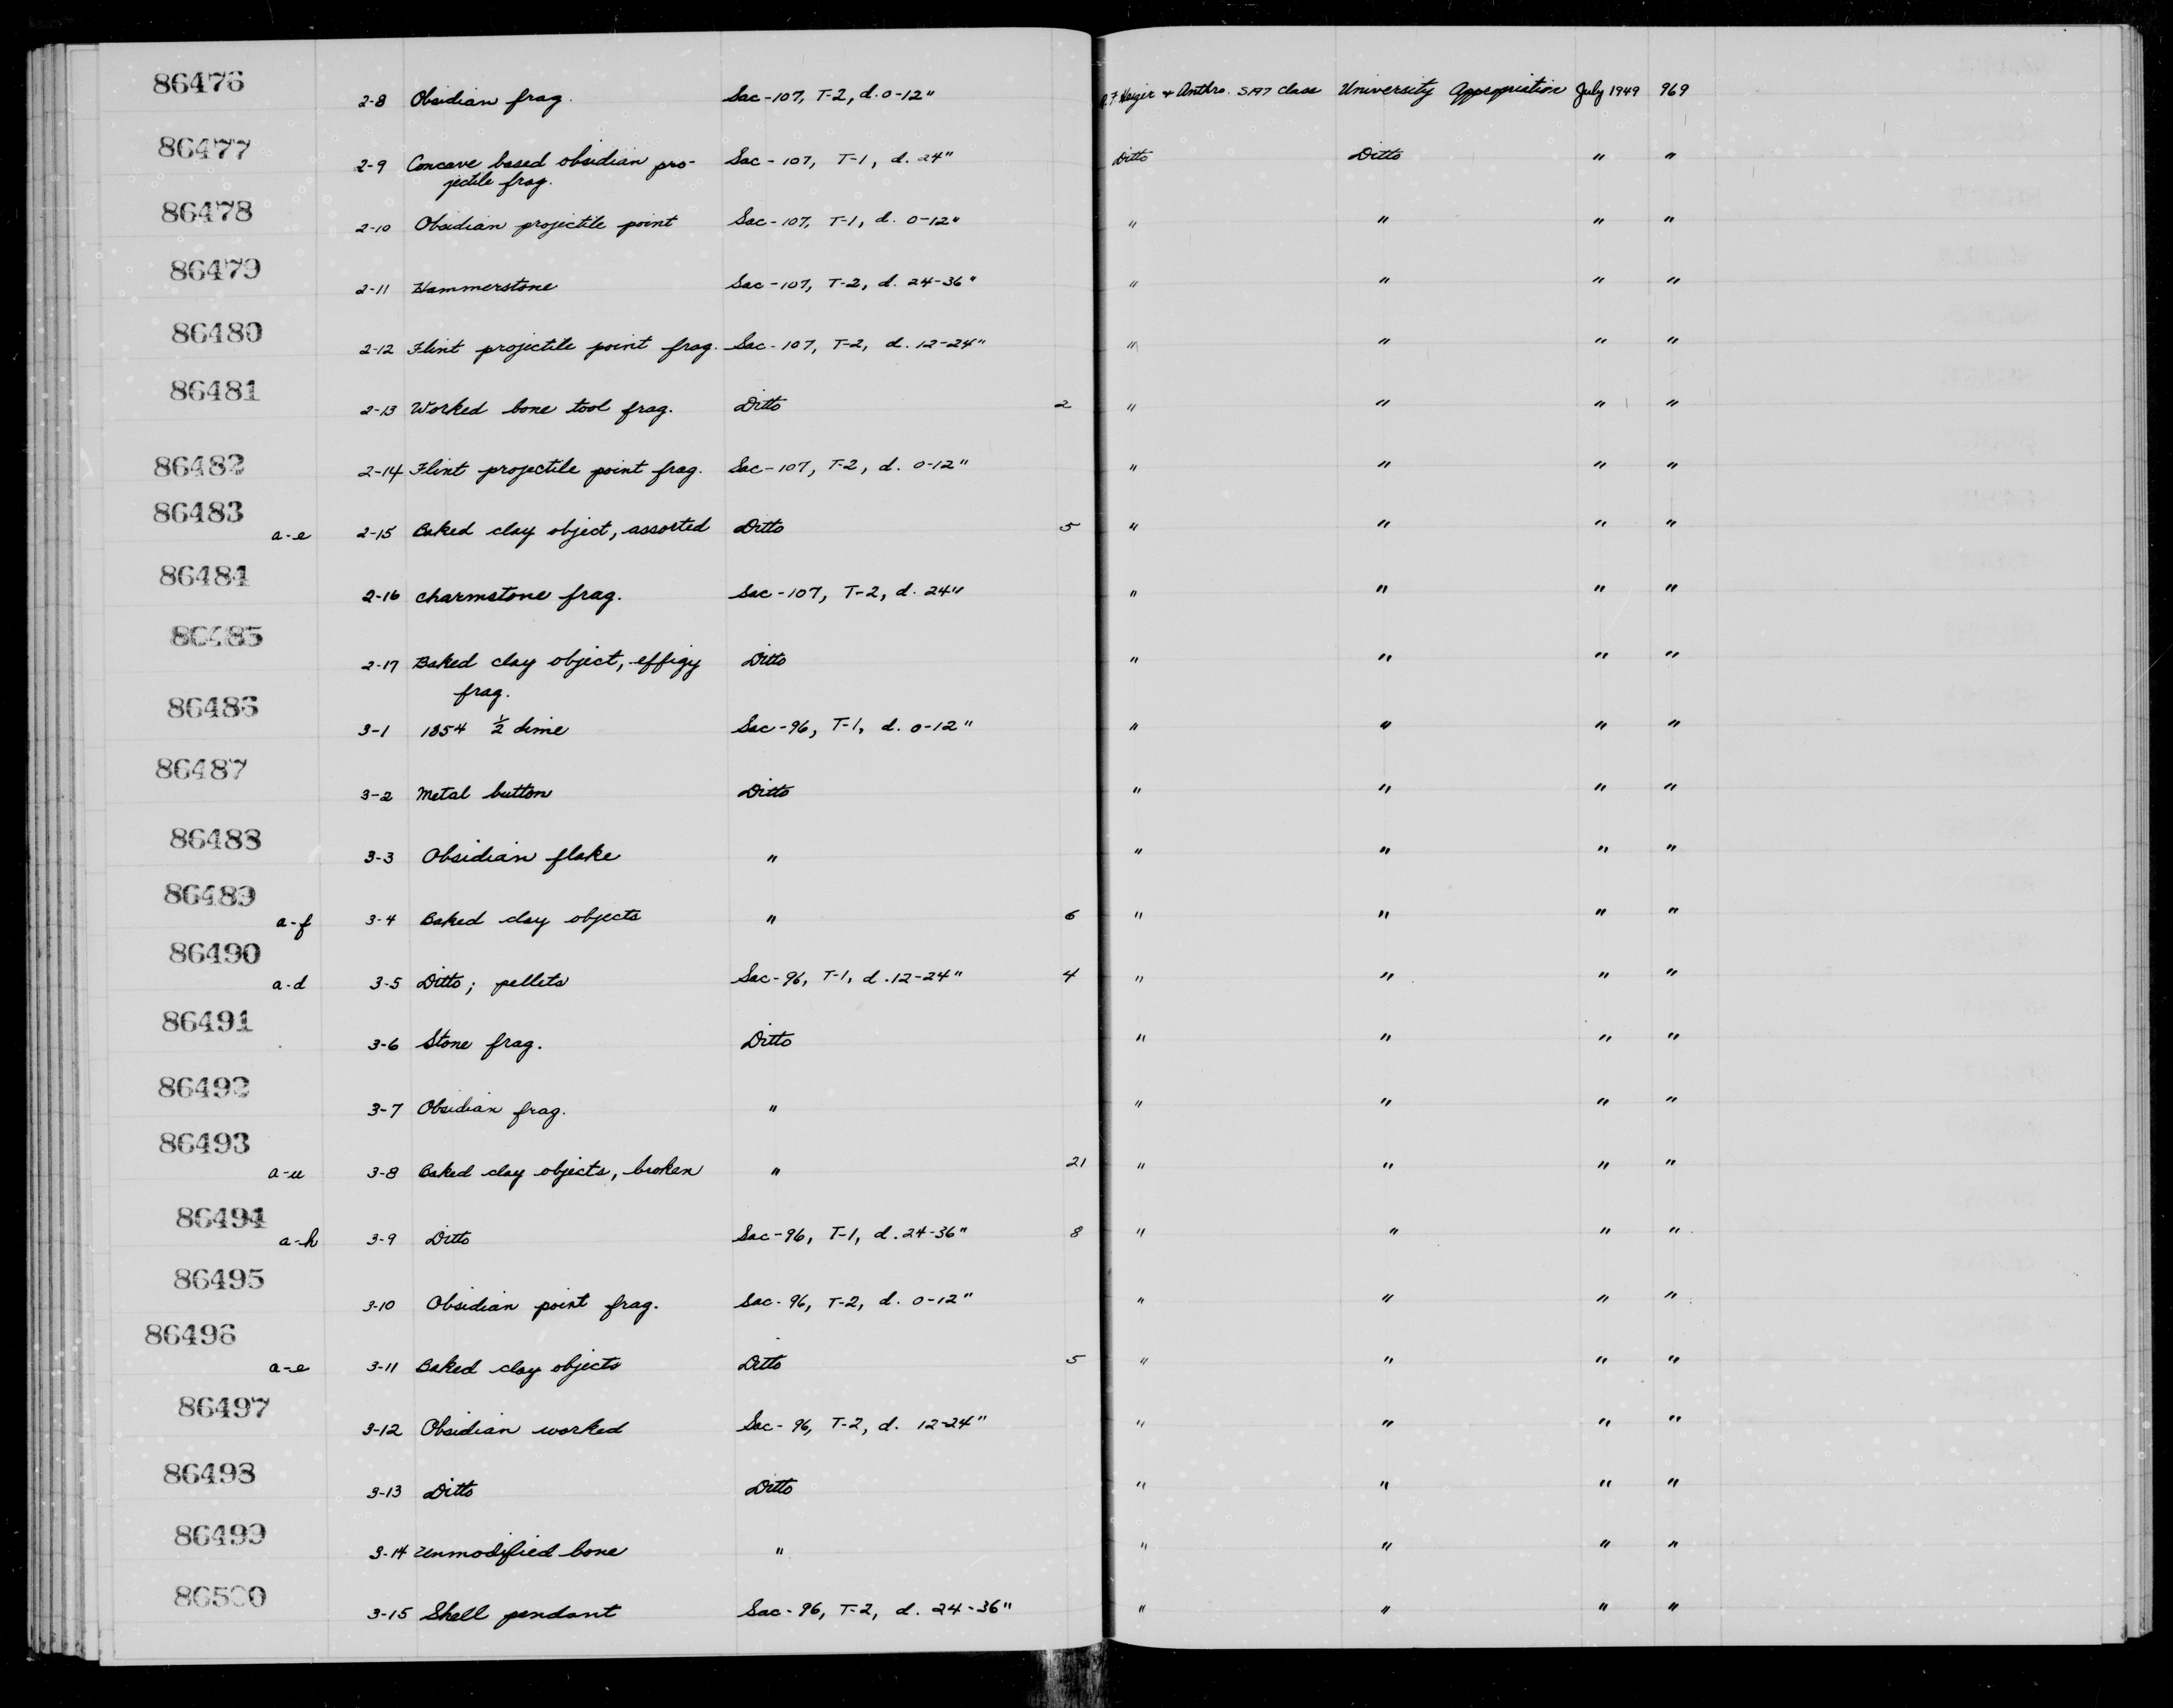 86476 2-8 Obsidian frag. Sac-107, T-2, d. 0-12" R. F. Heizer & Anthro. S197 class University Appropriation July 1949 969
86477 2-9 Concave based obsidian pro- Sac-107, T-1, d. 24" Ditto Ditto " "
jectile frag.
86478 2-10 Obsidian projectile point Sac-107, T-1, d. 0-12" " " " "
86479 2-11 Hammerstone Sac-107, T-2, d. 24-36" " " " "
86480 2-12 Flint projectile point frag. Sac-107, T-2, d. 12-24" " " " "
86481 2-13 Worked bone tool frag. Ditto 2 " " " "
86482 2-14 Flint projectile point frag. Sac-107, T-2, d. 0-12" " " " "
86483 a-e 2-15 Baked clay object, assorted Ditto 5 " " " "
86484 2-16 Charmstone frag. Sac-107, T-2, d. 24" " " " "
86485 2-17 Baked clay object, effigy Ditto " " " "
frag.
86486 3-1 1854 ½ dime Sac-96, T-1, d. 0-12" " " " "
86487 3-2 Metal button Ditto " " " "
86488 3-3 Obsidian flake " " " " "
86489 a-f 3-4 Baked clay objects " 6 " " " "
86490 a-d 3-5 Ditto; pellets Sac-96, T-1, d. 12-24" 4 " " " "
86491 3-6 Stone frag. Ditto " " " "
86492 3-7 Obsidian frag. " " " " "
86493 a-u 3-8 Baked clay objects, broken " 21 " " " "
86494 a-h 3-9 Ditto Sac-96, T-1, d. 24-36" 8 " " " "
86495 3-10 Obsidian point frag. Sac-96, T-2, d. 0-12" " " " "
86496 a-e 3-11 Baked clay objects Ditto 5 " " " "
86497 3-12 Obsidian worked Sac-96, T-2, d. 12-24" " " " "
86498 3-13 Ditto Ditto " " " "
86499 3-14 Unmodified bone " " " " "
86500 3-15 Shell pendant Sac-96, T-2, d. 24-36" " " " "